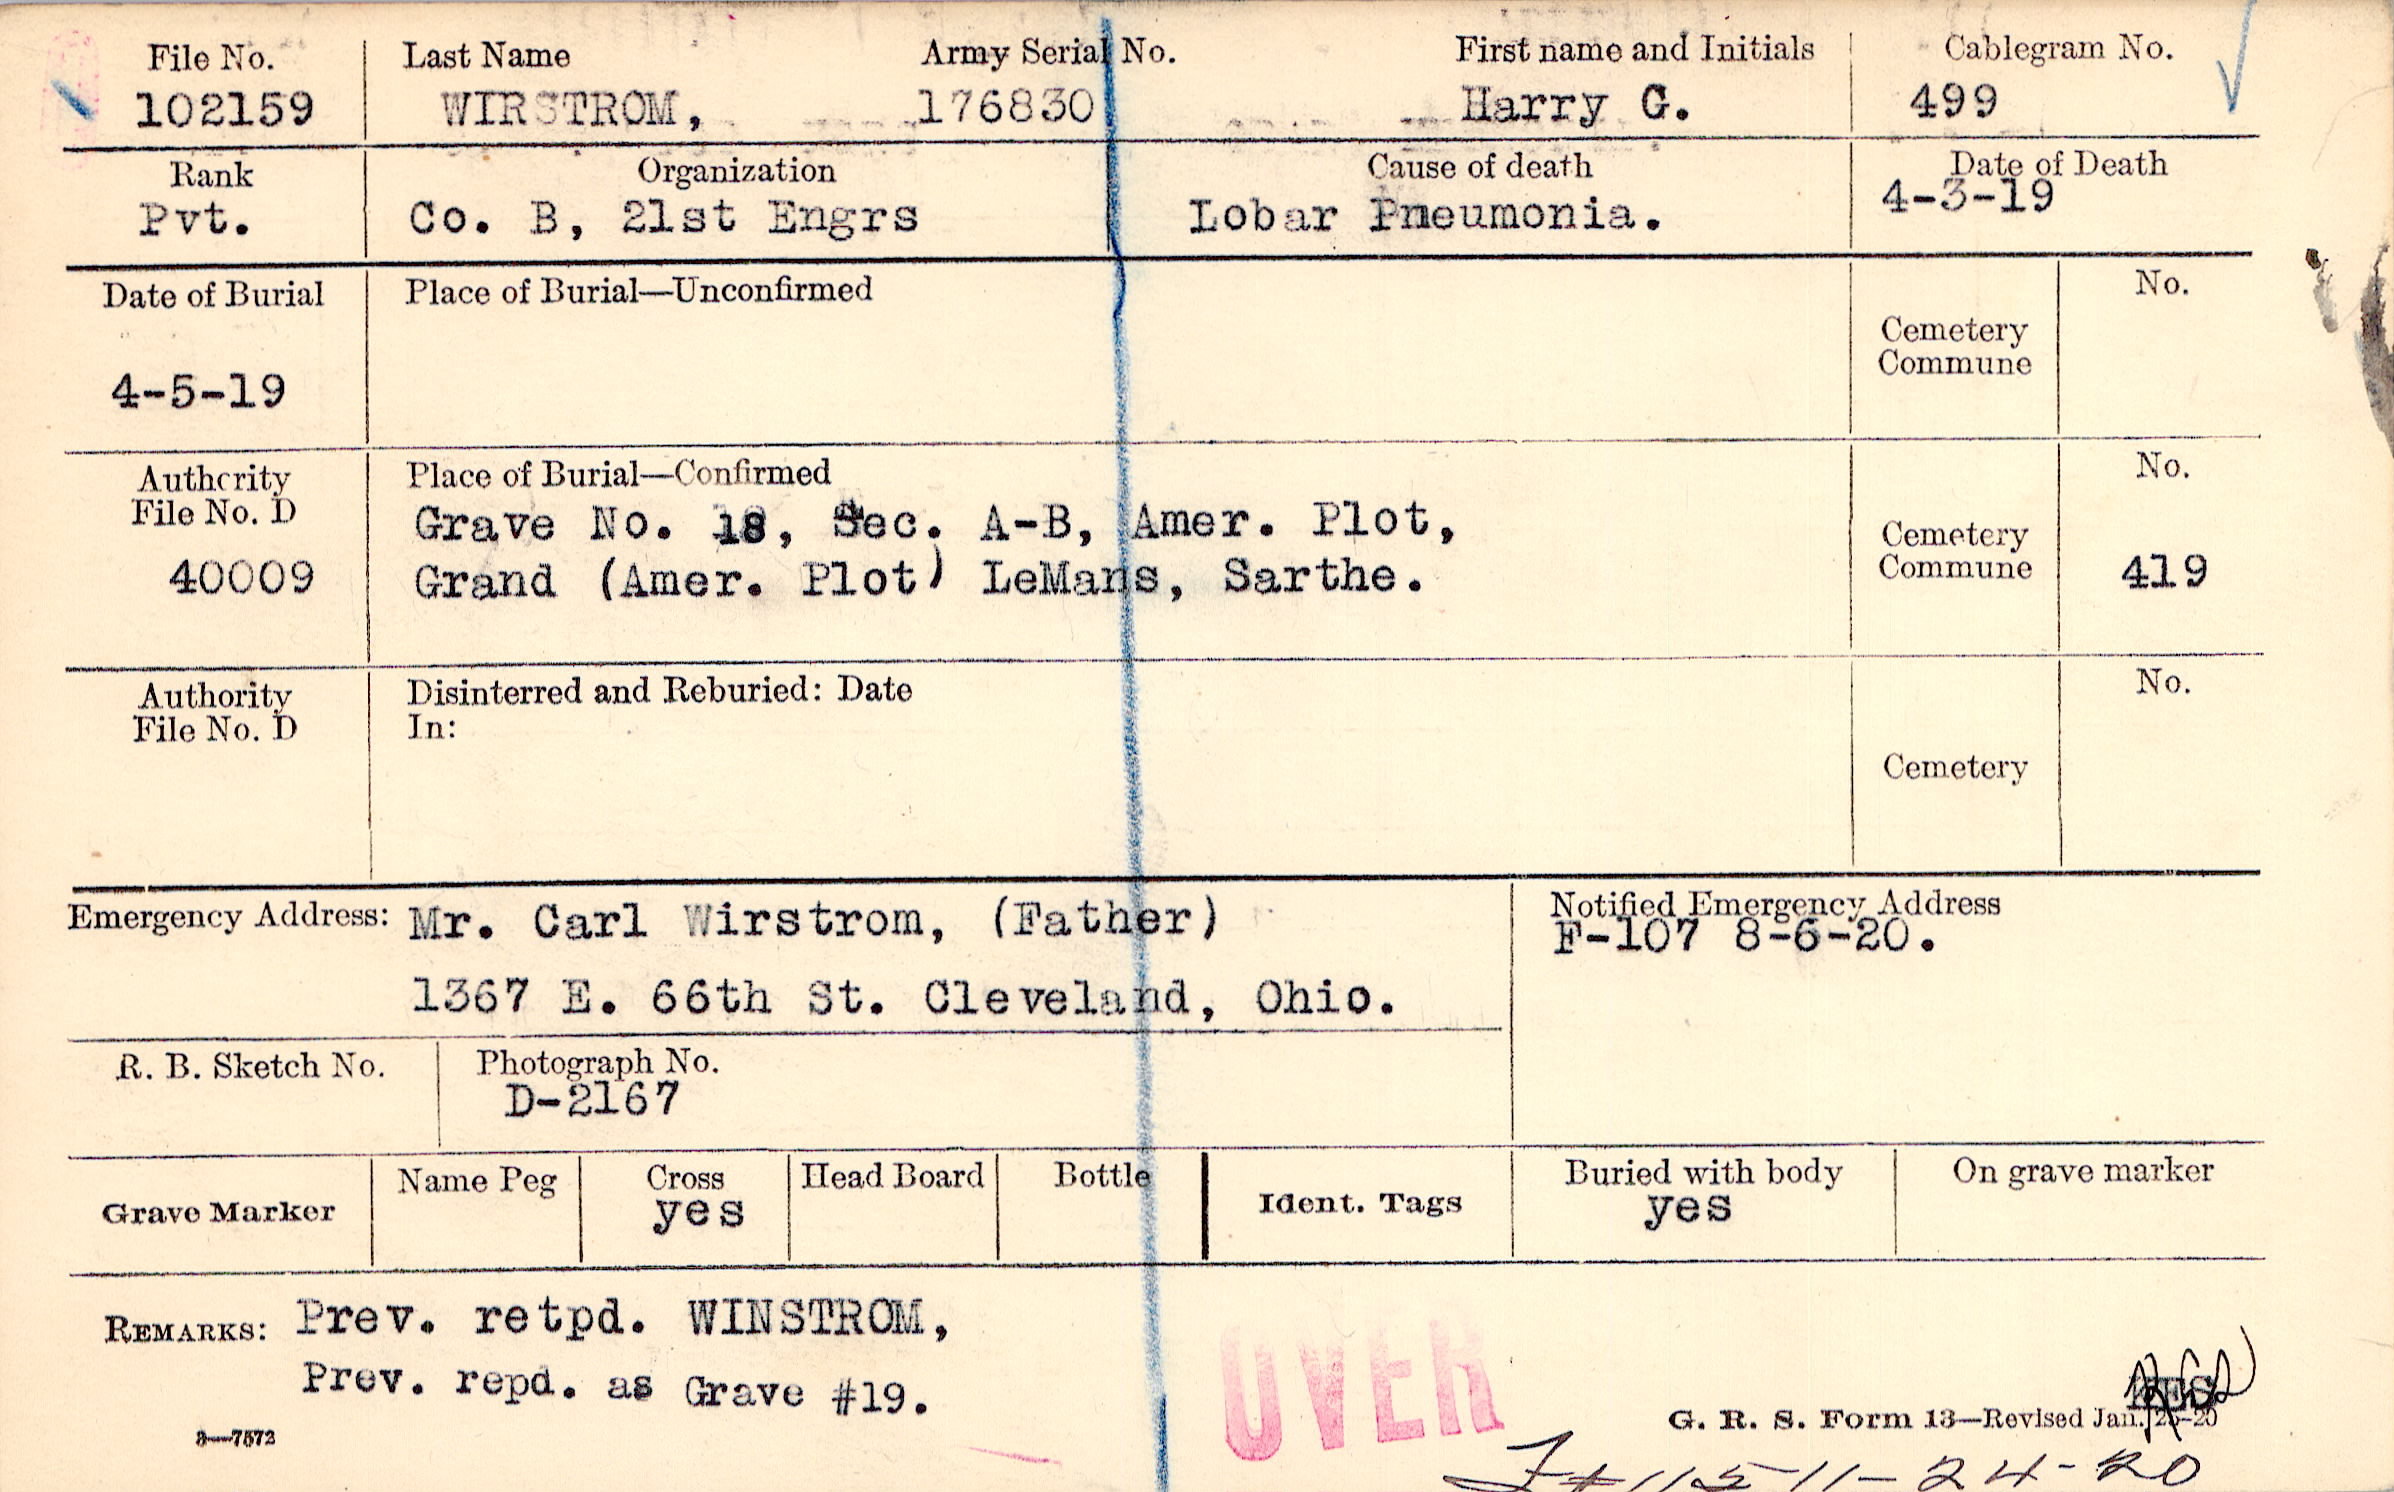 File No. Last Name Army Serial No. First name and Initials Cablegram No.
102159 WIRSTROM, 176830 Harry G. 499
Rank Organization Cause of death Date of Death
Pvt. Co. B, 21st Engrs Lobar Pneumonia. 4-3-19
Date of Burial Place of Burial—Unconfirmed No.
Cemetery
Commune
4-5-19
Authority Place of Burial—Confirmed No.
File No. D Grave No. 18, Sec. A-B, Amer. Plot,
Cemetery
40009 Grand (Amer. Plot) LeMans, Sarthe. Commune 419
Authority Disinterred and Reburied: Date No.
File No. D In:
Cemetery
Emergency Address: Mr. Carl Wirstrom, (Father) Notified Emergency Address
F-107 8-6-20.
1367 E. 66th St. Cleveland, Ohio.
R. B. Sketch No. Photograph No.
D-2167
Grave Marker Name Peg Cross Head Board Bottle Ident. Tags Buried with body On grave marker
yes yes
REMARKS: Prev. retpd. WINSTROM,
Prev. repd. as Grave #19.
OVER
G. R. S. Form 13—Revised Jan. 26-20
3—7572
11-24-20